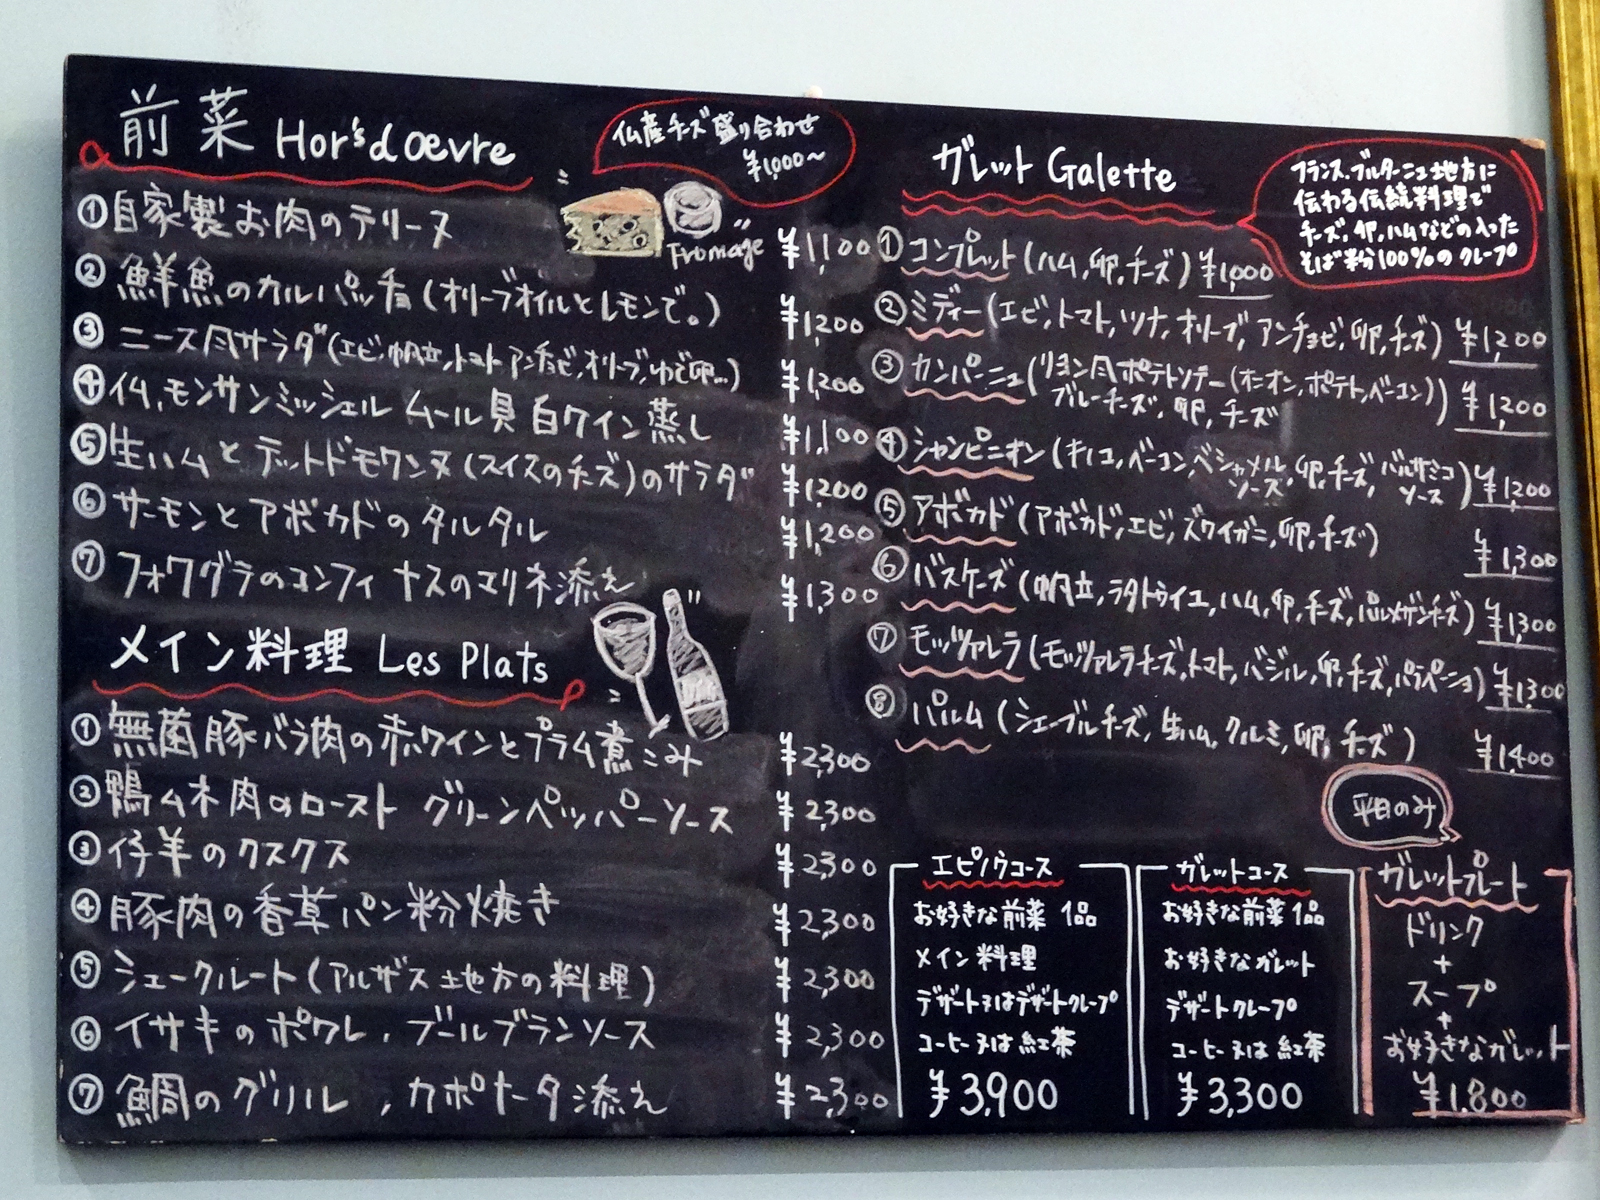 前菜 Hor's d oevre
仏産チーズ盛り合わせ
¥1,000～
Fromage
①自家製お肉のテリーヌ ¥1,100
②鮮魚のカルパッチョ(オリーブオイルとレモンで。) ¥1200
③ニース風サラダ(エビ,帆立,トマト アンチョビ,オリーブ,ゆで卵...) ¥1,200
④仏,モンサンミッシェル ムール貝 白ワイン蒸し ¥1,100
⑤生ハムと テットドモワンヌ(スイスのチーズ)のサラダ ¥1200
⑥サーモンとアボカドのタルタル ¥1,200
⑦フォワグラのコンフィ ナスのマリネ添え ¥1,300
メイン料理 Les Plats
①無菌豚バラ肉の赤ワインとプラム煮こみ ¥2,300
②鴨ムネ肉のロースト グリーンペッパーソース ¥2,300
③仔羊のクスクス ¥2,300
④豚肉の香草パン粉焼き ¥2,300
⑤シュークルート(アルザス地方の料理) ¥2,300
⑥イサキのポワレ,ブールブランソース ¥2,300
⑦鯛のグリル,カポナータ添え ¥2,300
ガレット Galette
フランス、ブルターニュ地方に
伝わる伝統料理で
チーズ,卵,ハムなどの入った
そば粉100%のクレープ
①コンプレット(ハム,卵,チーズ) ¥1,000
②ミディー(エビ,トマト,ツナ,オリーブ,アンチョビ,卵,チーズ) ¥1200
③カンパーニュ(リヨン風ポテトソテー(オニオン,ポテト,ベーコン)
ブルーチーズ,卵,チーズ) ¥1200
④シャンピニオン(キノコ,ベーコン,ベシャメルソース,卵,チーズ,バルサミコソース) ¥1200
⑤アボカド(アボカド,エビ,ズワイガニ,卵,チーズ) ¥1,300
⑥バスケーズ(帆立,ラタトゥイユ,ハム,卵,チーズ,パルメザンチーズ) ¥1300
⑦モッツァレラ(モッツァレラチーズ,トマト,バジル,卵,チーズ,パラペーニョ) ¥1300
⑧パルム(シェーブルチーズ,生ハム,クルミ,卵,チーズ) ¥1400
エピノウコース
お好きな前菜 1品
メイン料理
デザート又はデザートクレープ
コーヒー又は紅茶
¥3,900
ガレットコース
お好きな前菜 1品
お好きなガレット
デザートクレープ
コーヒー又は紅茶
¥3,300
平日のみ
ガレットプレート
ドリンク
+
スープ
+
お好きなガレット
¥1,800